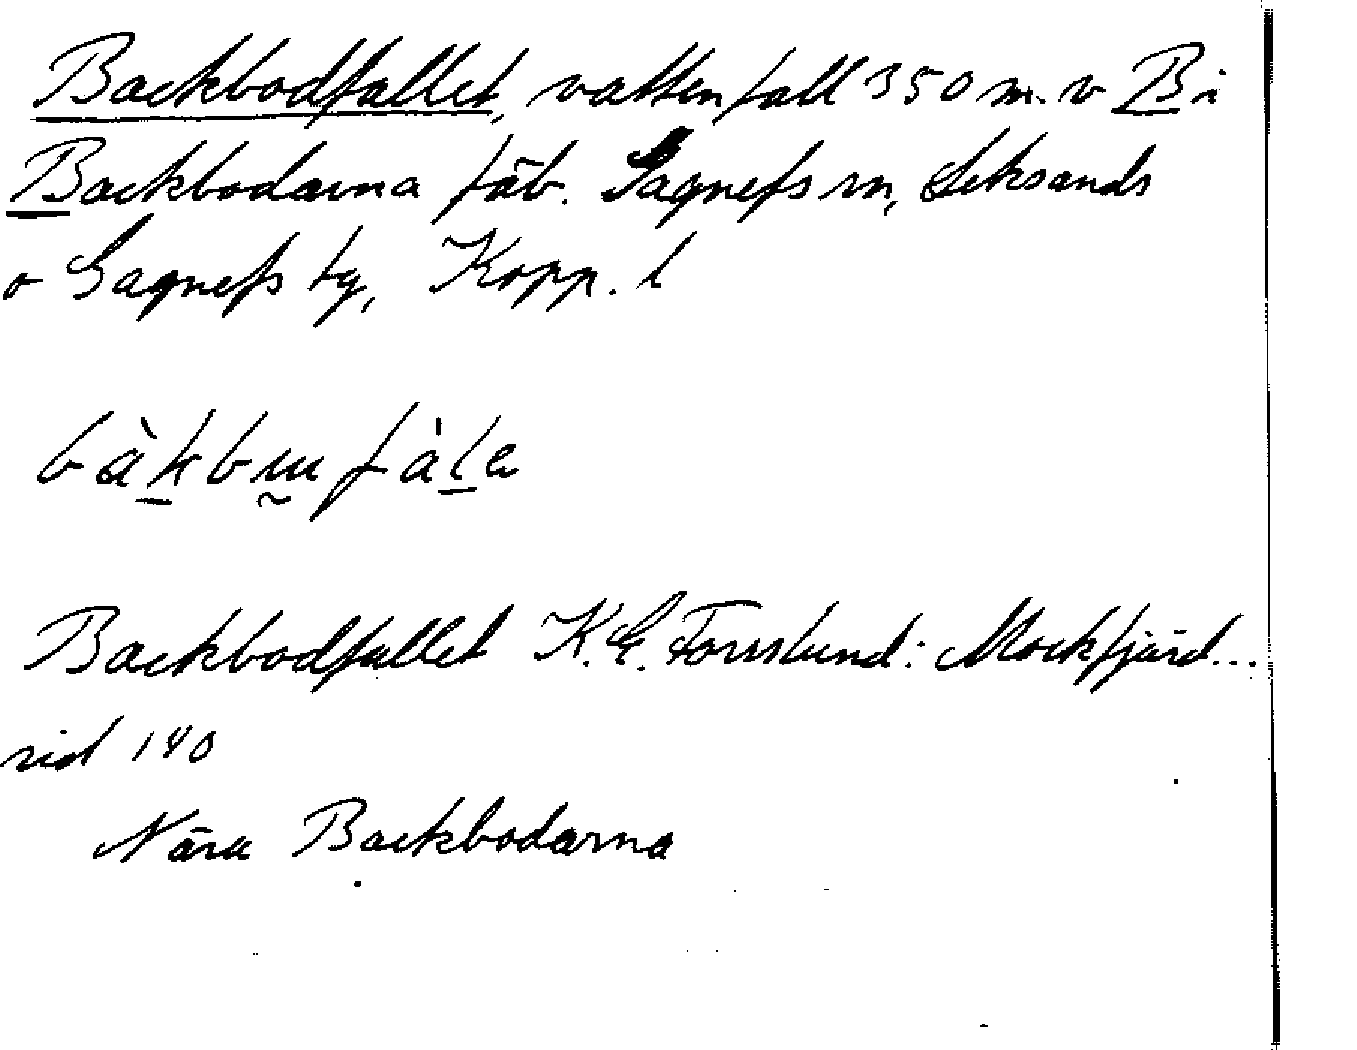 Backbodfallet, vattenfall 350 m. v B i
Backbodarna fäb. Gagnefs sn, Leksands
o Gagnefs tg, Kopp. l
bàkbɯfàle
Backbodfallet K.E. Forsslund: Mockfjärd...
sid 140
Nära Backbodarna